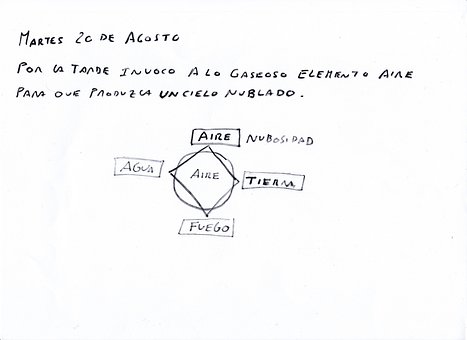 MARTES 20 DE AGOSTO
POR LA TARDE INVOCO A LO GASEOSO ELEMENTO AIRE
PARA QUE PRODUZCA UN CIELO NUBLADO.
AIRE NUBOSIDAD
AGUA AIRE TIERRA
FUEGO